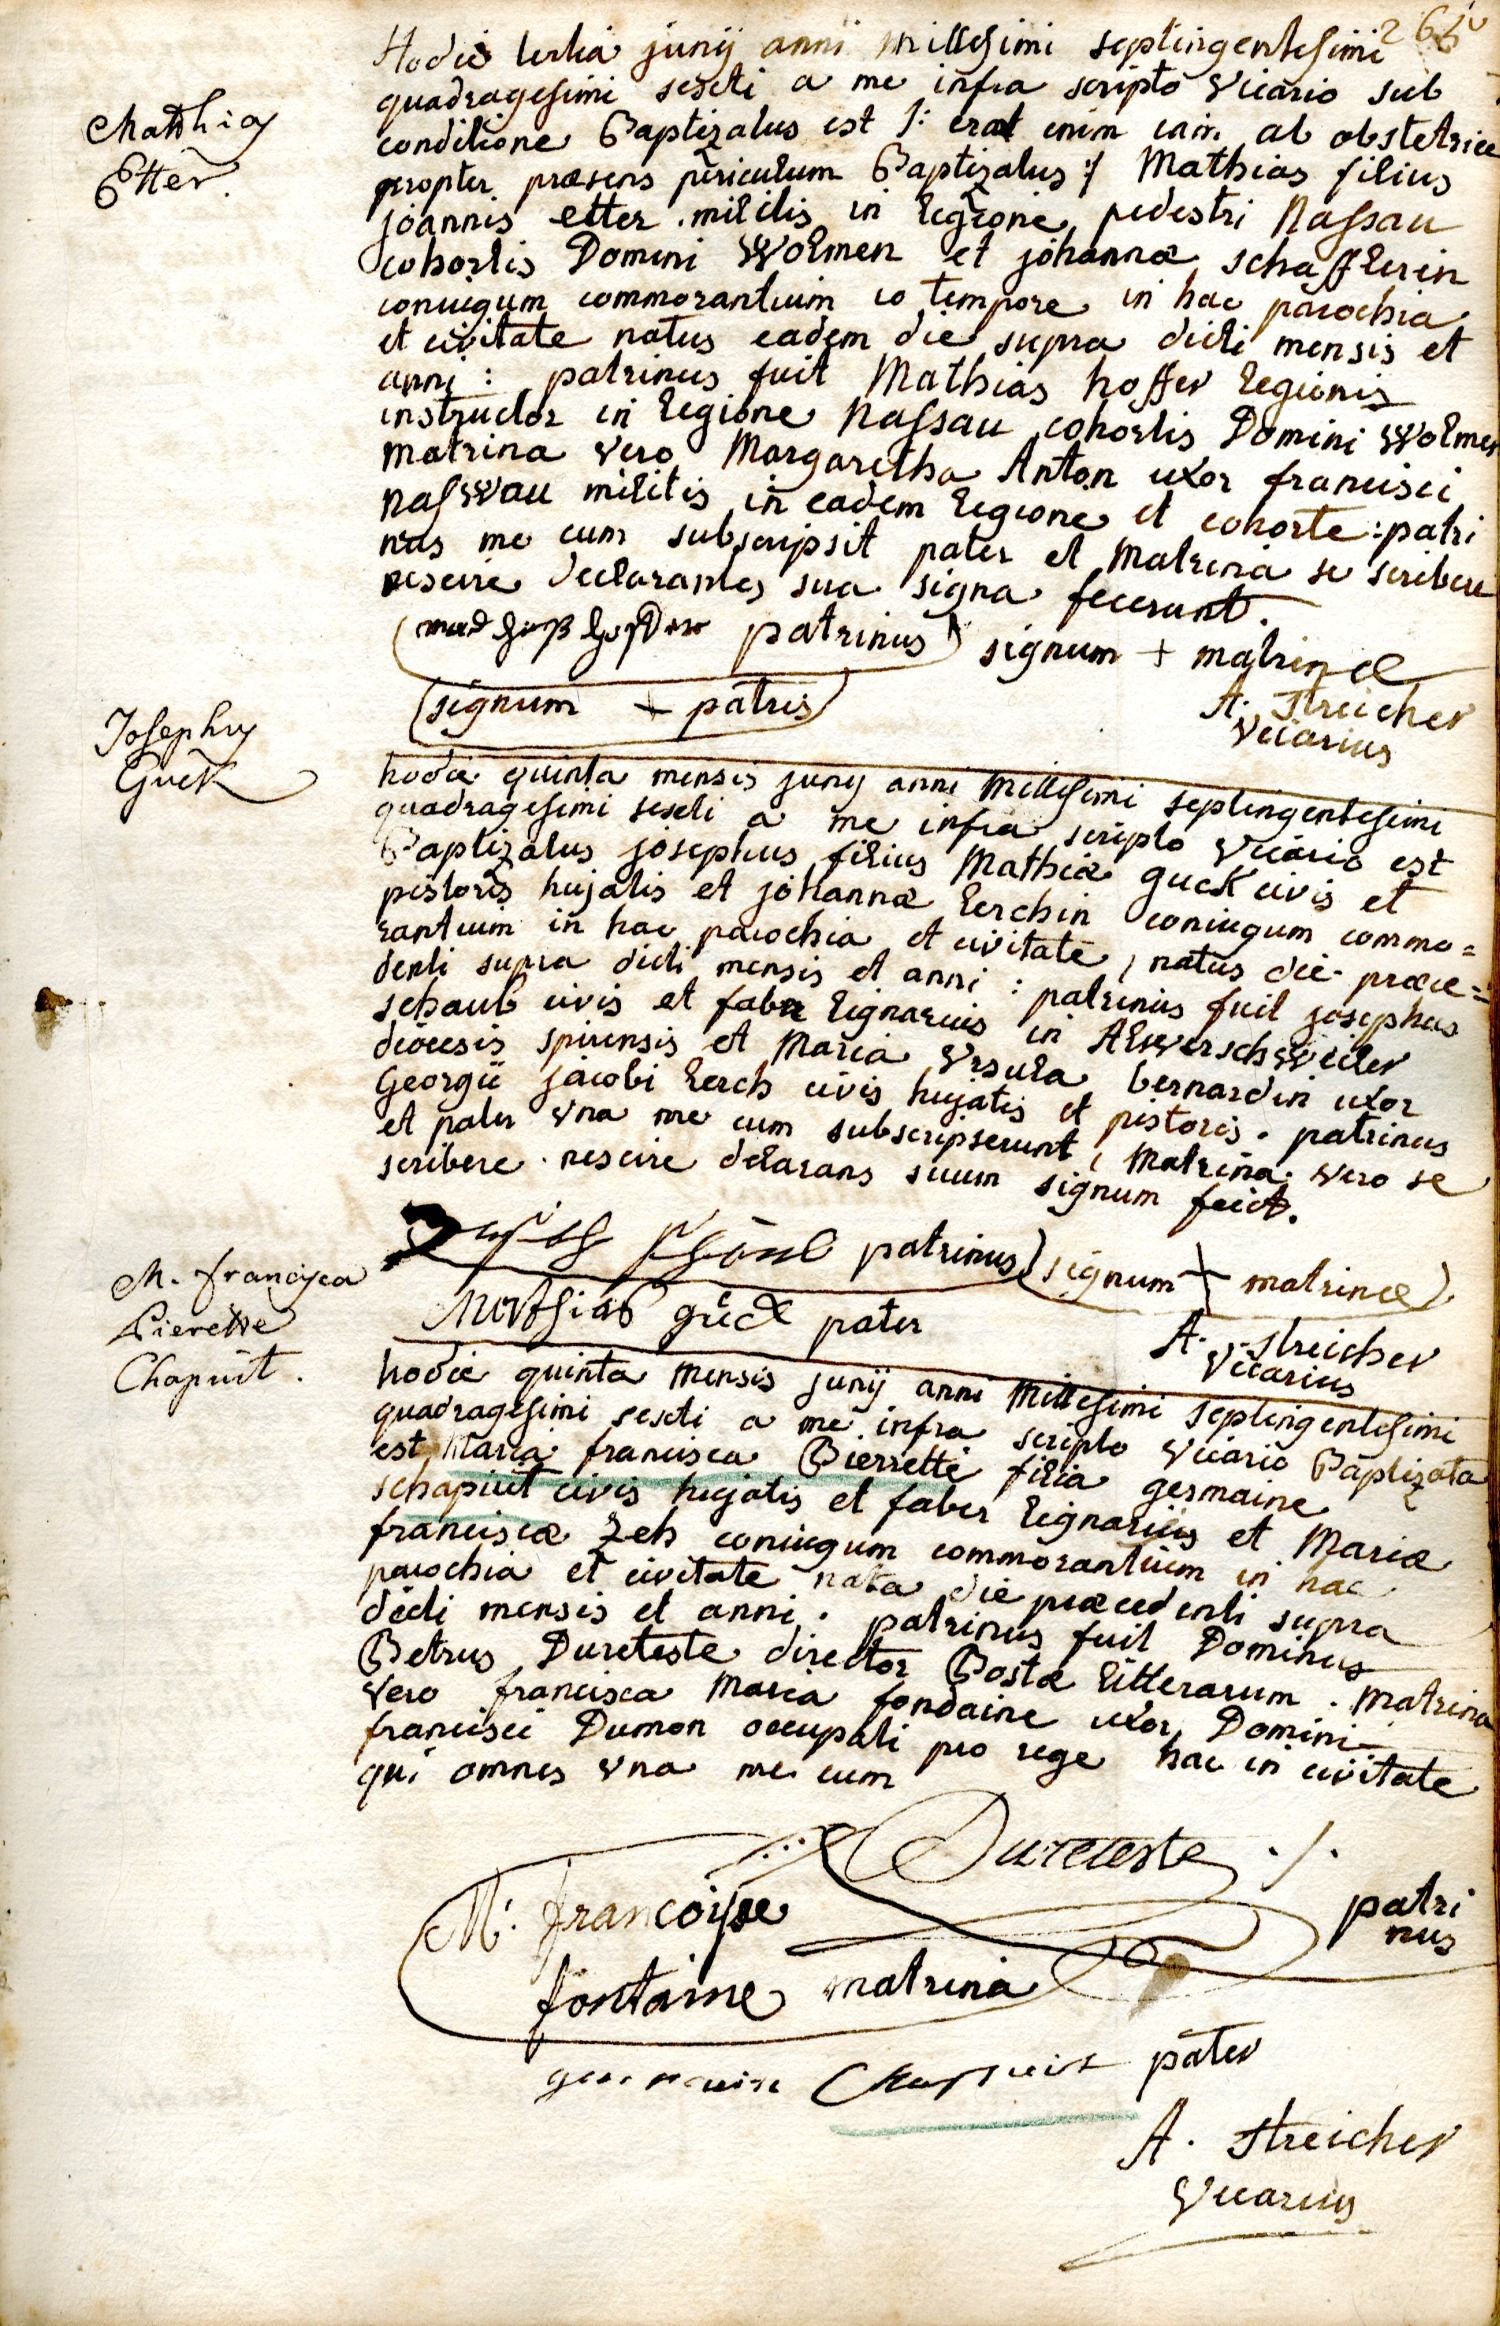 Mathias
Etter.
Hodie tertia junij anni millesimi septingentesimi
quadragesimi sexti a me infra scripto vicario sub
conditione Baptizatus est /: erat enim iam ab obstetrice
propter præsens periculum Baptizatus :/ Mathias filius
joannis etter militis in legione pedestri Nassau
cohortis Domini Wolmen et johannæ schafflerin
coniugum commorantium eo tempore in hac parochia
et civitate natus eadem die supra dicti mensis et
anni : patrinus fuit Mathias hoffer legionis
instructor in legione Nassau cohortis Domini Wolmen
matrina vero Margaretha Anton uxor francisci
nasswau militis in eadem legione et cohorte : patri
nus me cum subscripsit pater et matrina se scribere
nescire declarantes sua signa fecerunt.
patrinus signum + matrinæ
signum + patris
A. Streicher
vicarius
Josephus
Guck
hodie quinta mensis junij anni millesimi septingentesimi
quadragesimi sexti a me infra scripto vicario est
Baptizatus josephus filius Mathiæ guck civis et
pistoris hujatis et johannæ lerchin coniugum commo=
rantium in hac parochia et civitate, natus die præce=
denti supra dicti mensis et anni : patrinus fuit josephus
schaub civis et faber lignarius in Alsverschweiler
diœcesis spirensis et Maria Ursula bernardin uxor
Georgii jacobi lerch civis hujatis et pistoris. patrinus
et pater una me cum subscripserunt, Matrina vero se
scribere nescire delarans suum signum fecit.
patrinus signum + matrinæ
Mathias gück pater
A. Streicher
vicarius
M. francisca
Pierette
Chapuit.
hodie quinta mensis junij anni Millesimi septingentesimi
quadragesimi sexti a me infra scripto vicario Baptizata
est Maria francisca Pierrette filia germaine
schapiut civis hujatis et faber lignarius et Mariæ
franciscæ zeh coniugum commorantium in hac
parochia et civitate nata die præcedenti supra
dicti mensis et anni. patrinus fuit Dominus
Petrus Dureteste director Postæ litterarum. Matrina
vero francisca Maria fondaine uxor Domini
francisci Dumon occupati pro rege hac in civitate
qui omnes una me cum
Dureteste ./.
patri
nus
M. francoise
fontaine matrina
germain Chappuit pater
A. Streicher
vicarius